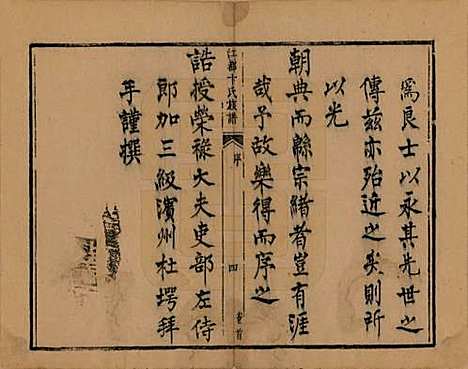 為良士以永其先世之
傳茲亦殆近之矣則所
以光
朝典而緜宗緒者豈有涯
哉予故樂得而序之
江都卞氏族譜
序
四
卷首
誥授榮祿大夫吏部左侍
郎加三級濱州杜堮拜
手謹撰